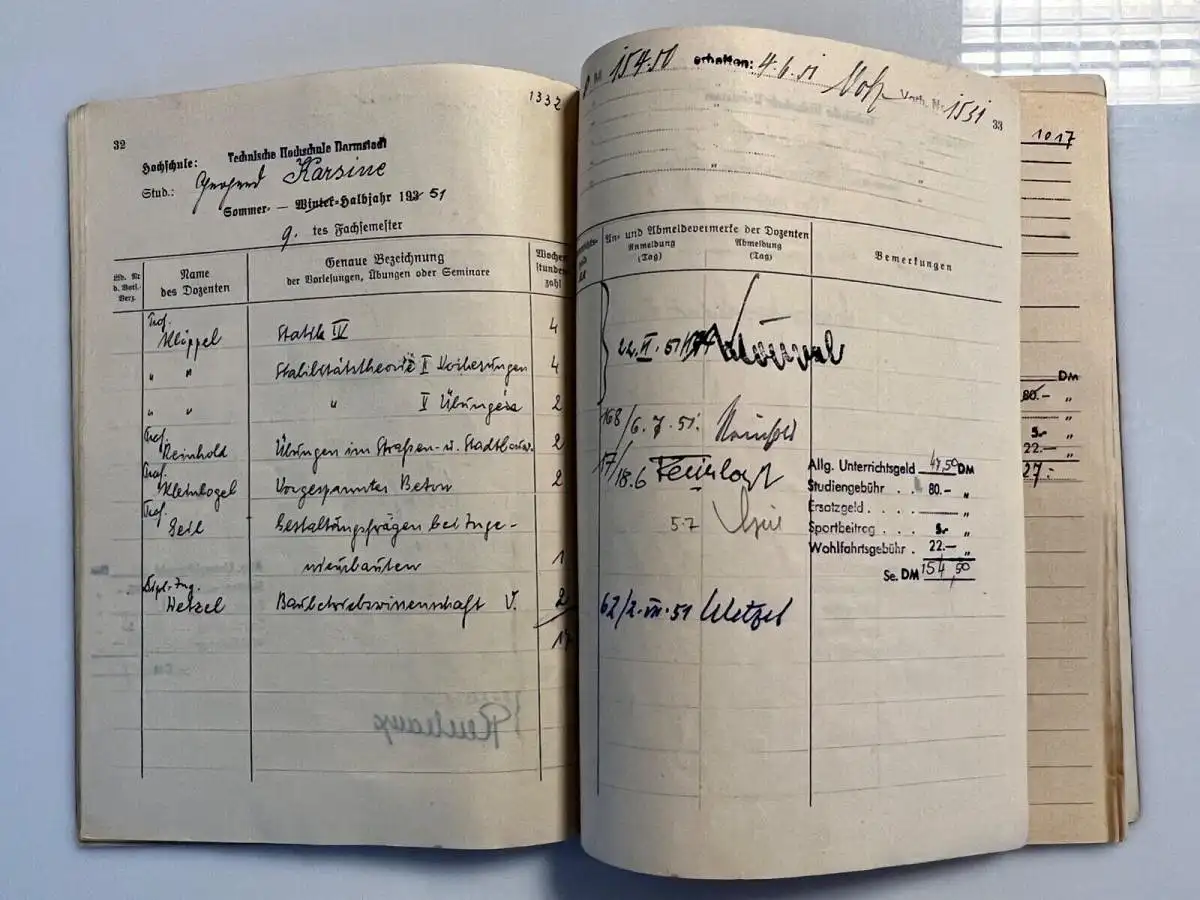 1332
32
Hochschule: Technische Hochschule Darmstadt
Stud.: Gerhard Karsine
Sommer- — Winter-Halbjahr 193 51
9. tes Fachsemester
Lfd. Nr. d. Vorl. Verz.
Name des Dozenten
Genaue Bezeichnung der Vorlesungen, Übungen oder Seminare
Wochenstundenzahl
Prof. Klöppel Statik IV 4
" " Stabilitätstheorie I Vorlesungen 4
" " " Übungen 2
Prof. Reinhold Übungen im Straßen- u. Stadtbauw. 2
Prof. Kleinlogel Vorgespannter Beton 2
Prof. Geil Gestaltungsfragen bei Inge-
nieurbauten 1
Dipl.-Ing. Wetzel Baubetriebswissenschaft V. 2
17
M 154.50 erhalten: 4.6.51 Vorb. Nr. 1531
33
An- und Abmeldevermerke der Dozenten
Anmeldung (Tag)
Abmeldung (Tag)
Bemerkungen
22. II. 51
168/6.7.51. Reinhold
17/18.6 Kleinlogel
5.7 Geil
62/2. VII. 51 Wetzel
Allg. Unterrichtsgeld 47,50 DM
Studiengebühr . . 80.- "
Ersatzgeld . . "
Sportbeitrag . . 5.- "
Wohlfahrtsgebühr . 22.- "
Se. DM 154,50
1017
DM
80.- "
"
5.- "
22.- "
27.-